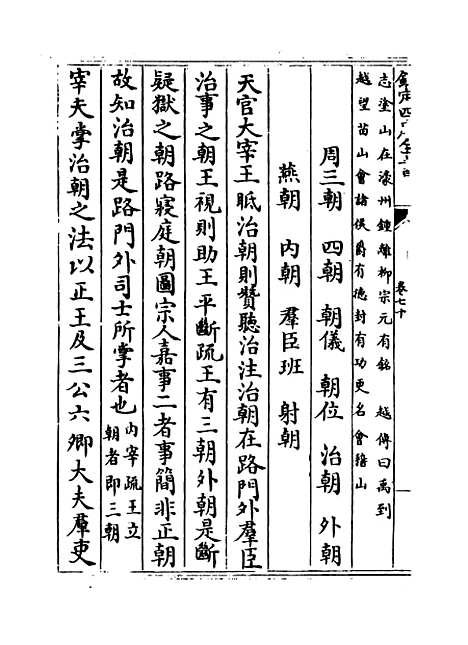 欽定四庫全書
卷七十
志塗山在濠州鍾離柳宗元有銘 越傳曰禹到
越望苗山會諸侯爵有德封有功更名會稽山
周三朝 四朝 朝儀 朝位 治朝 外朝
燕朝 內朝 羣臣班 射朝
天官大宰王眡治朝則贊聽治注治朝在路門外羣臣
治事之朝王視則助王平斷疏王有三朝外朝是斷
疑獄之朝路寢庭朝圖宗人嘉事二者事簡非正朝
故知治朝是路門外司士所掌者也內宰疏王立
朝者即三朝
宰夫掌治朝之法以正王及三公六卿大夫羣吏